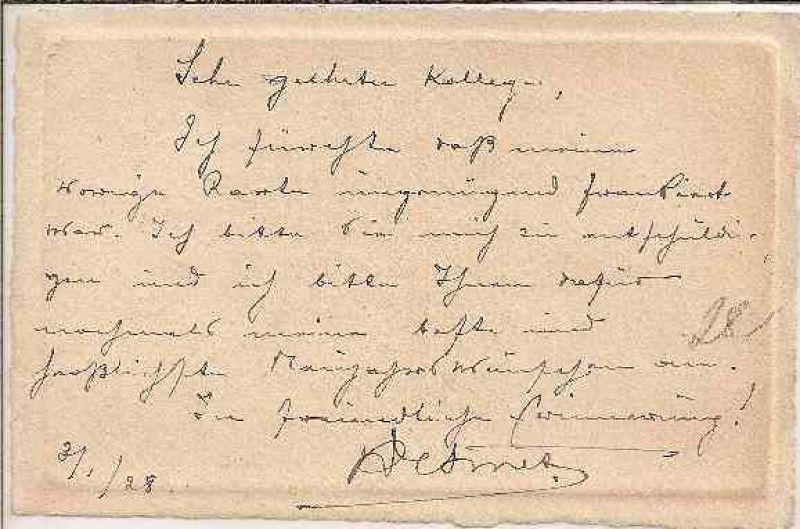 Sehr geehrter Kollege,
Ich fürchte daß meine
vorige Karte ungenügend frankiert
war. Ich bitte Sie mich zu entschuldi-
gen und ich bitte Ihnen dafür
nochmals meine beste und
herzlichste Neujahrswünschen an.
In freundliche Erinnerung!
3/1/28.
28